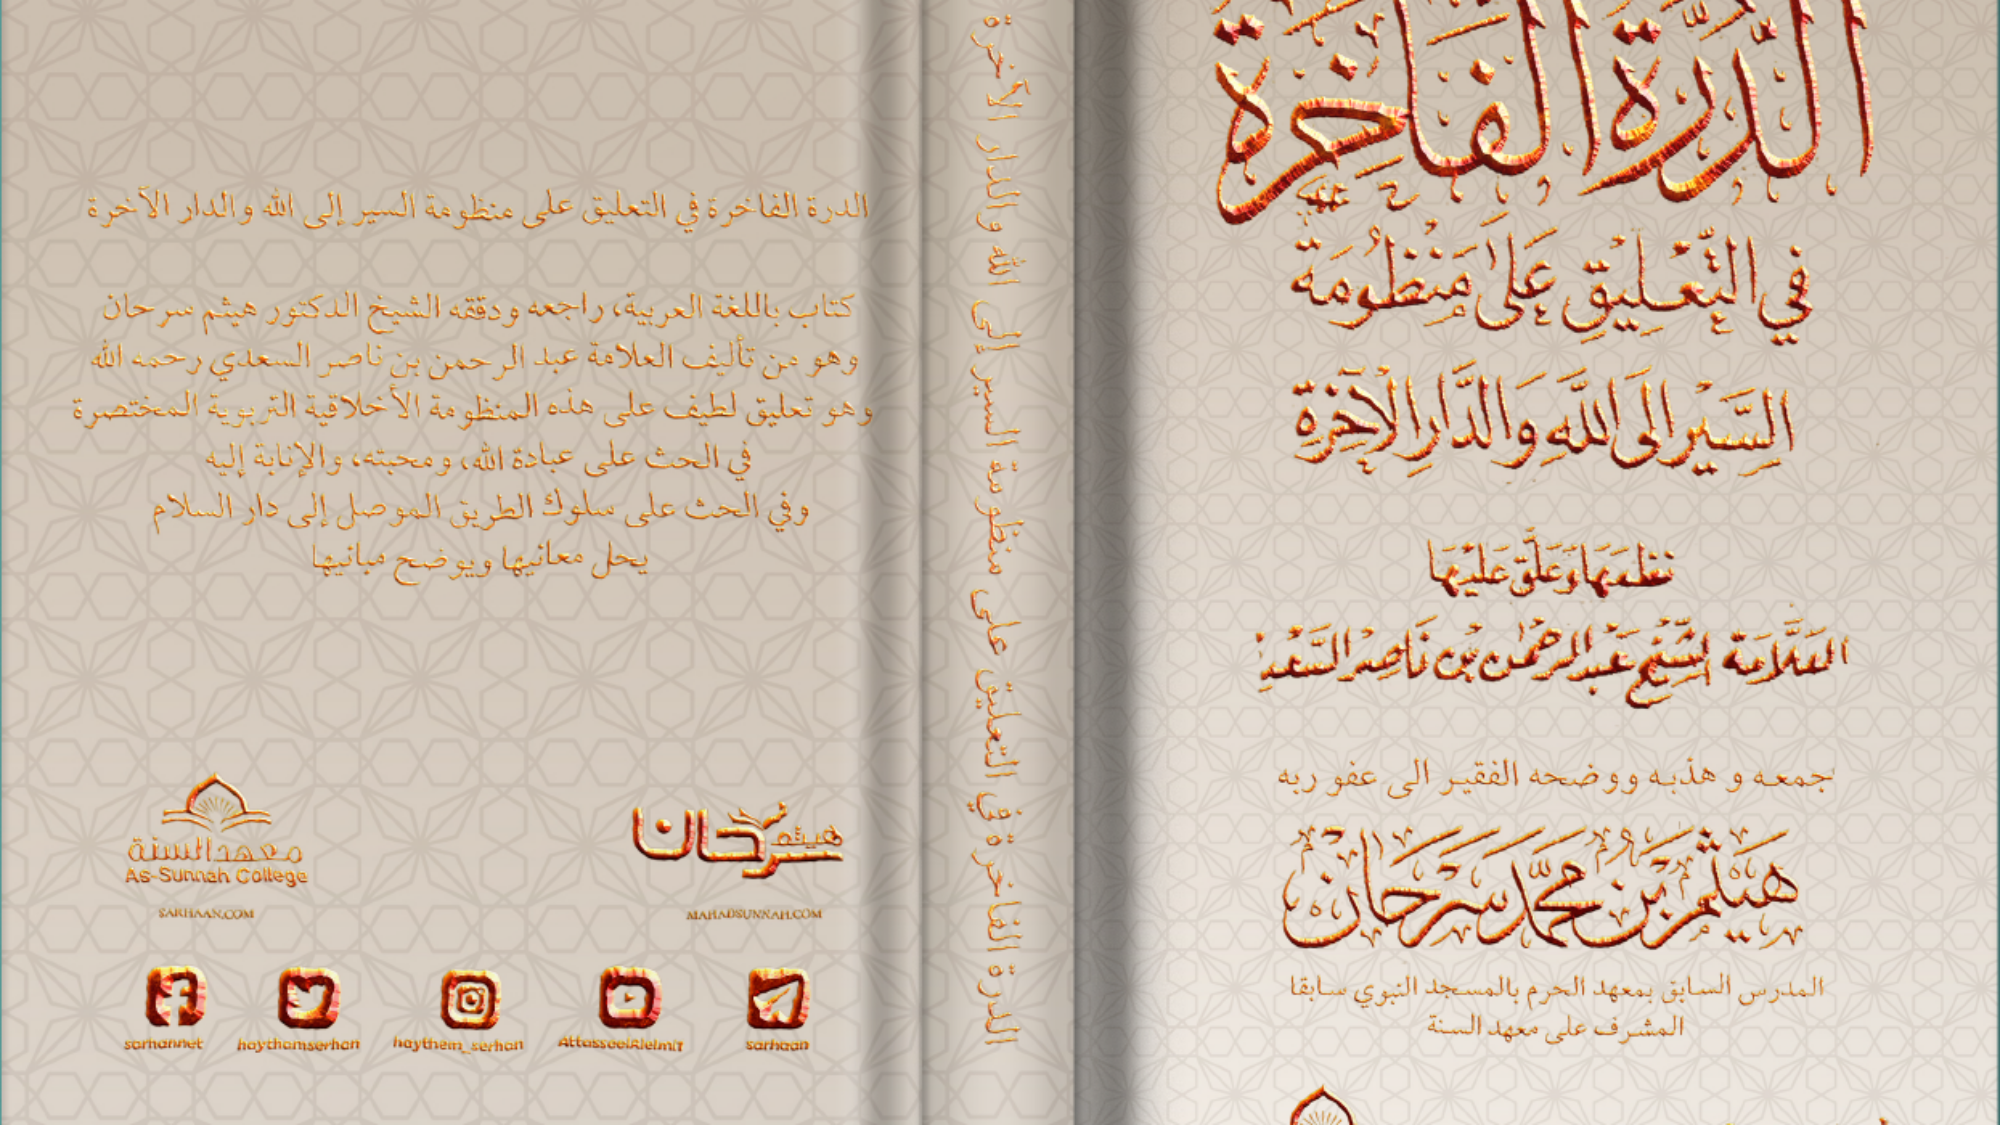 الدُّرَّةُ الفَاخِرَةُ
فِي التَّعْلِيْقِ عَلَىٰ مَنْظُومَةِ
السَّيْرِ إِلَى اللَّهِ وَالدَّارِ الْآخِرَةِ
نظمَهَا وَعَلَّقَ عَلَيْهَا
العَلَّامَة الشَّيْخ عَبْد الرَّحْمٰن بْن نَاصِر السَّعْدِي
جمعه و هذبه ووضحه الفقير الى عفو ربه
هَيْثَم بْن مُحَمَّد سَرْحَان
المدرس السابق بمعهد الحرم بالمسجد النبوي سابقا
المشرف على معهد السنة
الدرة الفاخرة في التعليق على منظومة السير إلى الله والدار الآخرة
الدرة الفاخرة في التعليق على منظومة السير إلى الله والدار الآخرة
كتاب باللغة العربية، راجعه ودققه الشيخ الدكتور هيثم سرحان
وهو من تأليف العلامة عبد الرحمن بن ناصر السعدي رحمه الله
وهو تعليق لطيف على هذه المنظومة الأخلاقية التربوية المختصرة
في الحث على عبادة الله، ومحبته، والإنابة إليه
وفي الحث على سلوك الطريق الموصل إلى دار السلام
يحل معانيها ويوضح مبانيها
هيثم سرحان
MAHADSUNNAH.COM
معهد السنة
As-Sunnah College
SARHAAN.COM
sarhannet
haythamserhan
haythem_serhan
AttasseelAlelmit
sarhaan